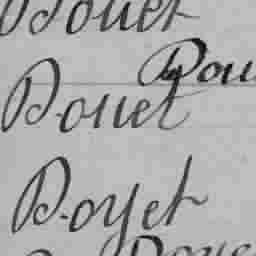 Douet
Dou
Douet
Doyet